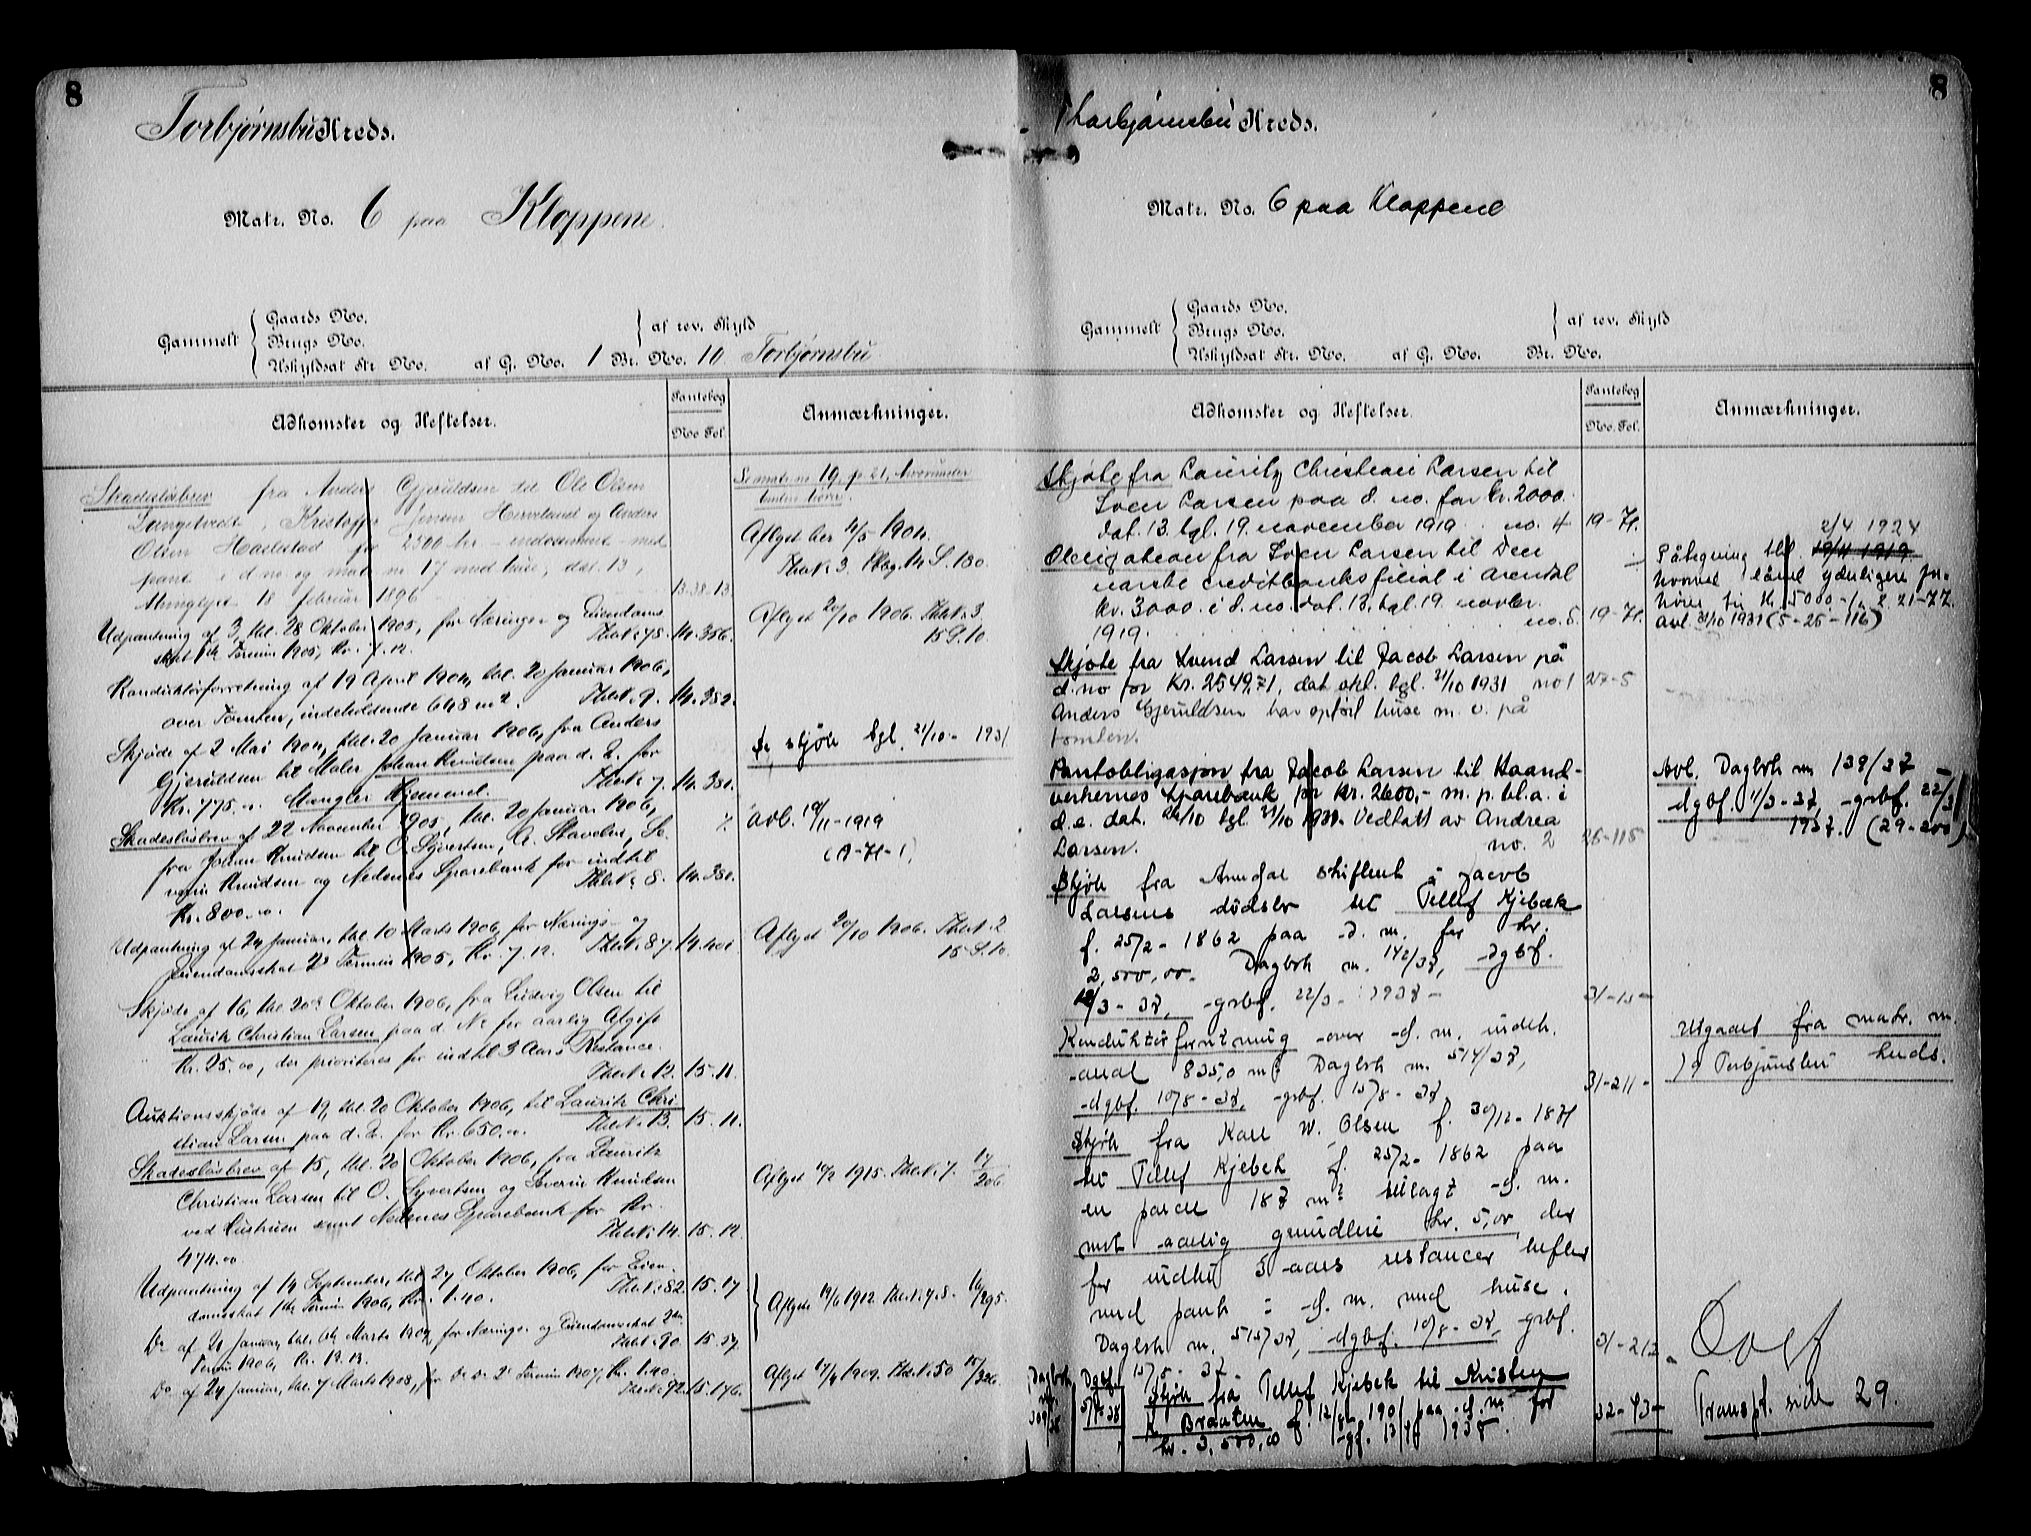 8
Torbjørnsbu Kreds.
Matr. No. 6 paa Kloppene.
Gaards No.
Gammelt Brugs No. af rev. Skyld
Uskyldsat Str. No. af G. No. 1 Br. No. 10 Torbjørnsbu
Adkomster og Heftelser.
Pantebog
No. Fol.
Anmærkninger.
Skadesløsbrev fra Anders Gjeruldsen til Ole Olsen
Kristoffer Jensen Herveland og Anders
Olsen Haslestad for 2500 kr
pant i d no og mat nr 17 med huse, dat. 13,
thinglyst 18 februar 1896 13.38.13.
Se matr. nr 19, p 21,
Aflyst her 4/5 1904.
Thk. No 3. Pbog. 14 S. 130.
Udpantning af 3, thl. 28 Oktober 1905, for Nærings- og Eiendoms
skat 1ste Termin 1905, Kr. 7.12. Thk. No 75. 14.356.
Aflyst 20/10 1906. Thk. No 3
15 S. 10.
Konduktørforretning af 19 April 1904, thl. 20 Januar 1906,
over Tomten, indeholdende 648 m². Thk. No 9. 14.382.
Skjøde af 2 Mai 1904, thl. 20 Januar 1906, fra Anders
Gjeruldsen til Maler Johan Knudsen paa d. E. for
Kr. 775.00. Mangler Hjemmel. Thk. No 7. 14.380.
Se skjøte tgl. 21/10 - 1931
Skadesløsbrev af 22 November 1905, thl. 20 Januar 1906,
fra Johan Knudsen til O. Syvertsen, G. Skaveler, Se-
verin Knudsen og Nedenes Sparebank for indtil
Kr. 800.00. Thk. No 8. 14.380.
avl. 19/11-1919
Udpantning af 24 Januar, thl. 10 Marts 1906, for Nærings- og
Eiendomsskat 2' Termin 1905, Kr. 7.12. Thk. No 87. 14.401
Aflyst 20/10 1906. Thk. No 2
15 S. 10.
Skjøde af 16, thl. 20de Oktober 1906, fra Ludvig Olsen til
Lauritz Christian Larsen paa d. No for aarlig Afgift
Kr. 25.00, der prioriteres for indtil 3 Aars Restance.
Thk. No 12. 15.11.
Auktionsskjøde af 19, thl. 20 Oktober 1906, til Lauritz Chri-
stian Larsen paa d. E. for Kr. 650.00. Thk. No 13. 15.11.
Skadesløsbrev af 15, thl. 20 Oktober 1906, fra Lauritz
Christian Larsen til O. Syvertsen og Severin Knudsen
ved Hustruen samt Nedenes Sparebank for Kr.
474.00. Thk. No 14. 15.12.
Aflyst 10/2 1915. Thk. No 7. 17/206.
Udpantning af 14 September, thl. 27 Oktober 1906, for Eien-
domsskat 1ste Termin 1906, Kr. 1.40. Thk. No 82. 15.17
Do af 21 Januar, thl. 6te Marts 1907 for Nærings- og Eiendomsskat 2den
Termin 1906, Kr. 19.13. Thk. No 90. 15.57.
Aflyst 14/6 1912. Thk. No 7.8. 16/295.
Do af 24 Januar, thl. 7 Marts 1908, for Do Do 2' Termin 1907, Kr. 1.40.
Thk. No 92. 15.176.
Aflyst 17/4 1909. Thk. No 50 15/326.
8
Thorbjørnsbu Kreds.
Matr. No. 6 paa Kloppene
Gaards No.
Gammelt Brugs No. af rev. Skyld
Uskyldsat Str. No. af G. No. Br. No.
Adkomster og Heftelser.
Pantebog
No. Fol.
Anmærkninger.
Skjøte fra Lauritz Christian Larsen til
Sven Larsen paa d. no. for kr. 2000.
dat. 13. tgl. 19. november 1919. no. 4 19-71.
Obligation fra Sven Larsen til Den
norske creditbanks filial i Arendal
kr. 3000. i d. no. dat. 13, tgl. 19. novbr.
1919. no. 5. 19-71.
2/4 1924
Påtegning tgl. 19/11 1919
hvorved lånet ydeligere for-
høies til kr. 5000
avl. 31/10 1931 (5-26-116)
Skjøte fra Svend Larsen til Jacob Larsen på
d. no for Kr. 2549,71, dat. okt. tgl. 21/10 1931 no 1 27-5
Anders Gjeruldsen har opført huse m. v. på
tomten.
Pantobligasjon fra Jacob Larsen til Haand-
verkernes Sparebank for Kr. 2600,- m. p. bl. a. i
d. e. dat. 26/10 tgl. 31/10 1931. Vedtatt av Andrea
Larsen. no. 2 26-115
Avl. Dagbok nr 139/37
dgbf. 11/3-37, grbf. 22/3
1937. (29-200)
Skjøte fra Arendal skifterett i Jacob
Larsens dødsbo til Tellef Kjebæk
f. 25/2-1862 paa d. nr. for kr.
2,500,00. Dagbok nr. 142/37, dgbf.
18/3-37, grbf. 22/3-1938- 31-15-
Konduktørforretning over d. nr. indeh.
areal 835,0 m² Dagbok nr. 514/37,
dgbf. 10/8-37, grbf. 15/8-37 31-211-
Utgaaet fra matr. nr.
19 Torbjørnsbu kreds.
Skjøte fra Karl W. Olsen f. 30/12-1871
til Tellef Kjebek f. 25/2-1862 paa
en parcel 187 m² tillagt d. nr.
mot aarlig grundleie kr. 5,00 der
for indtil 3 aars restancer hefter
med pant i d. nr. med huse.
Dagbok nr. 515/37, dgbf. 10/8-37, grbf.
15/8-37- 31-213-
Dagbok
nr.
309/38
Dgbf
5/4-38
Skjøte fra Tellef Kjebek til Kristen
K. Braaten f. 12/8-1901 paa d. nr. for
kr. 3,500,00 gf. 13/4 1938. 32-43-
Overf
Transpt. side 29.